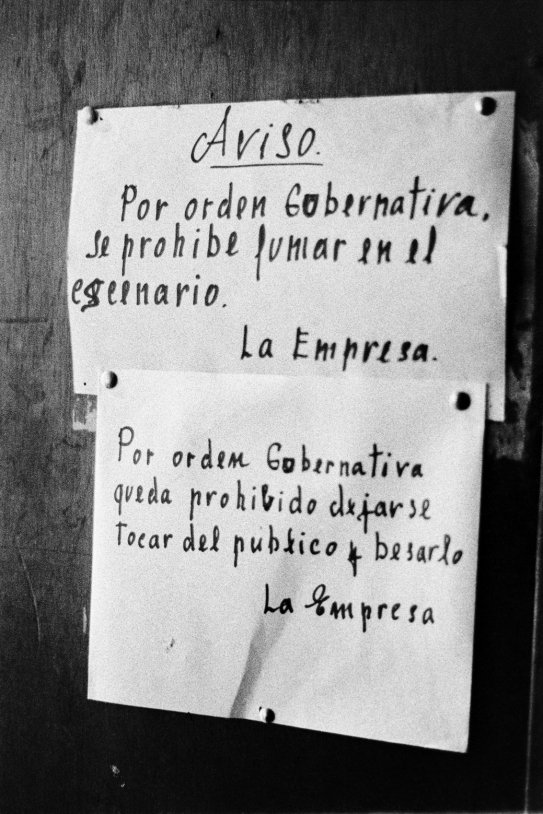 Aviso.
Por orden Gobernativa.
se prohibe fumar en el
escenario.
La Empresa.
Por orden Gobernativa
queda prohibido dejarse
tocar del publico y besarlo
La Empresa